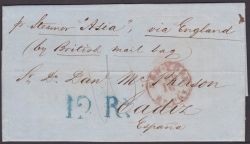 pr Steamer "Asia", via England
(by British mail bag)
Sr. Dn. Danl. McPherson
Cadiz
España
12 R.